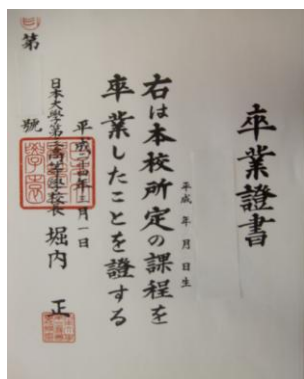 卒業證書
平成 年 月 日生
右は本校所定の課程を
卒業したことを證する
平成二十四年三月一日
日本大學第三高等學校長 堀内 正
第 號